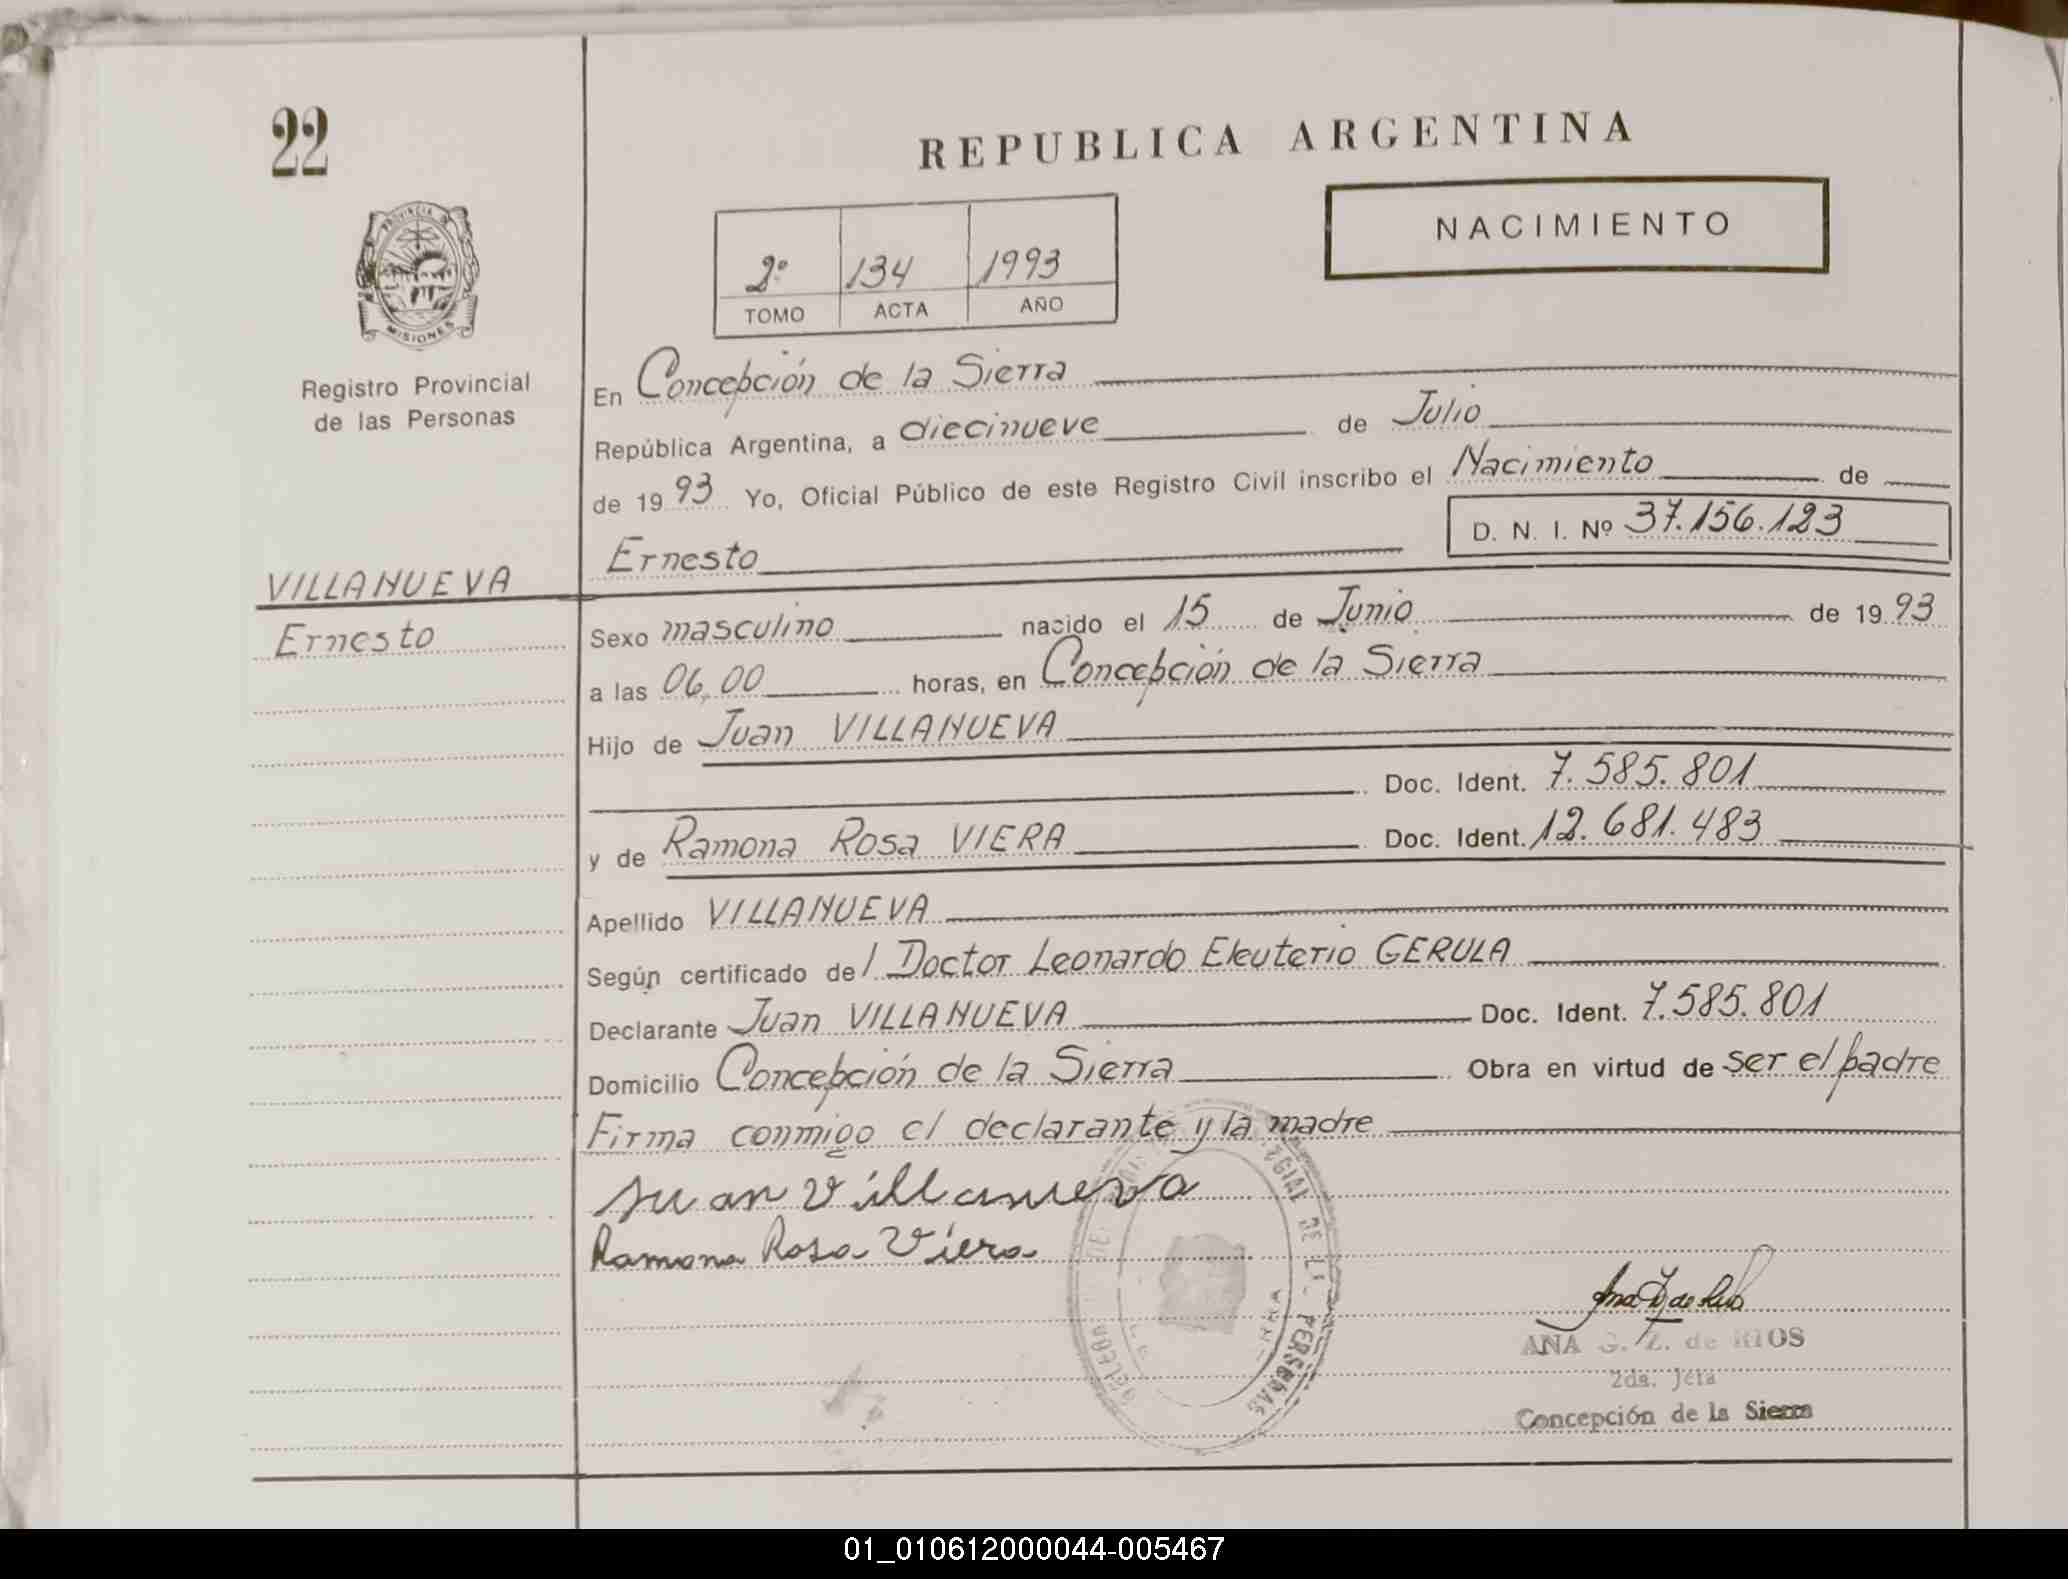 22
REPUBLICA ARGENTINA
NACIMIENTO
PROVINCIA DE
MISIONES
2º 134 1993
TOMO ACTA AÑO
Registro Provincial
de las Personas
En Concepción de la Sierra
República Argentina, a diecinueve de Julio
de 1993 Yo, Oficial Público de este Registro Civil inscribo el Nacimiento de
D. N. I. Nº 37.156.123
Ernesto
VILLANUEVA
Ernesto
Sexo masculino nacido el 15 de Junio de 1993
a las 06,00 horas, en Concepción de la Sierra
Hijo de Juan VILLANUEVA
Doc. Ident. 7.585.801
y de Ramona Rosa VIERA Doc. Ident. 12.681.483
Apellido VILLANUEVA
Según certificado del Doctor Leonardo Eleuterio GERULA
Declarante Juan VILLANUEVA Doc. Ident. 7.585.801
Domicilio Concepción de la Sierra Obra en virtud de ser el padre
Firma conmigo el declarante y la madre
Juan Villanueva
Ramona Rosa Viera
ANA G. Z. de RIOS
2da. Jefa
Concepción de la Sierra
DE LAS PERSONAS
01_010612000044-005467